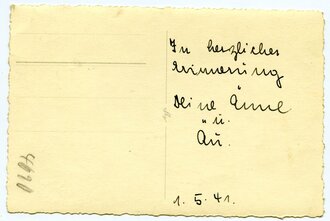 In herzlicher
Erinnerung
Deine Änne
u.
Au.
1. 5. 41.